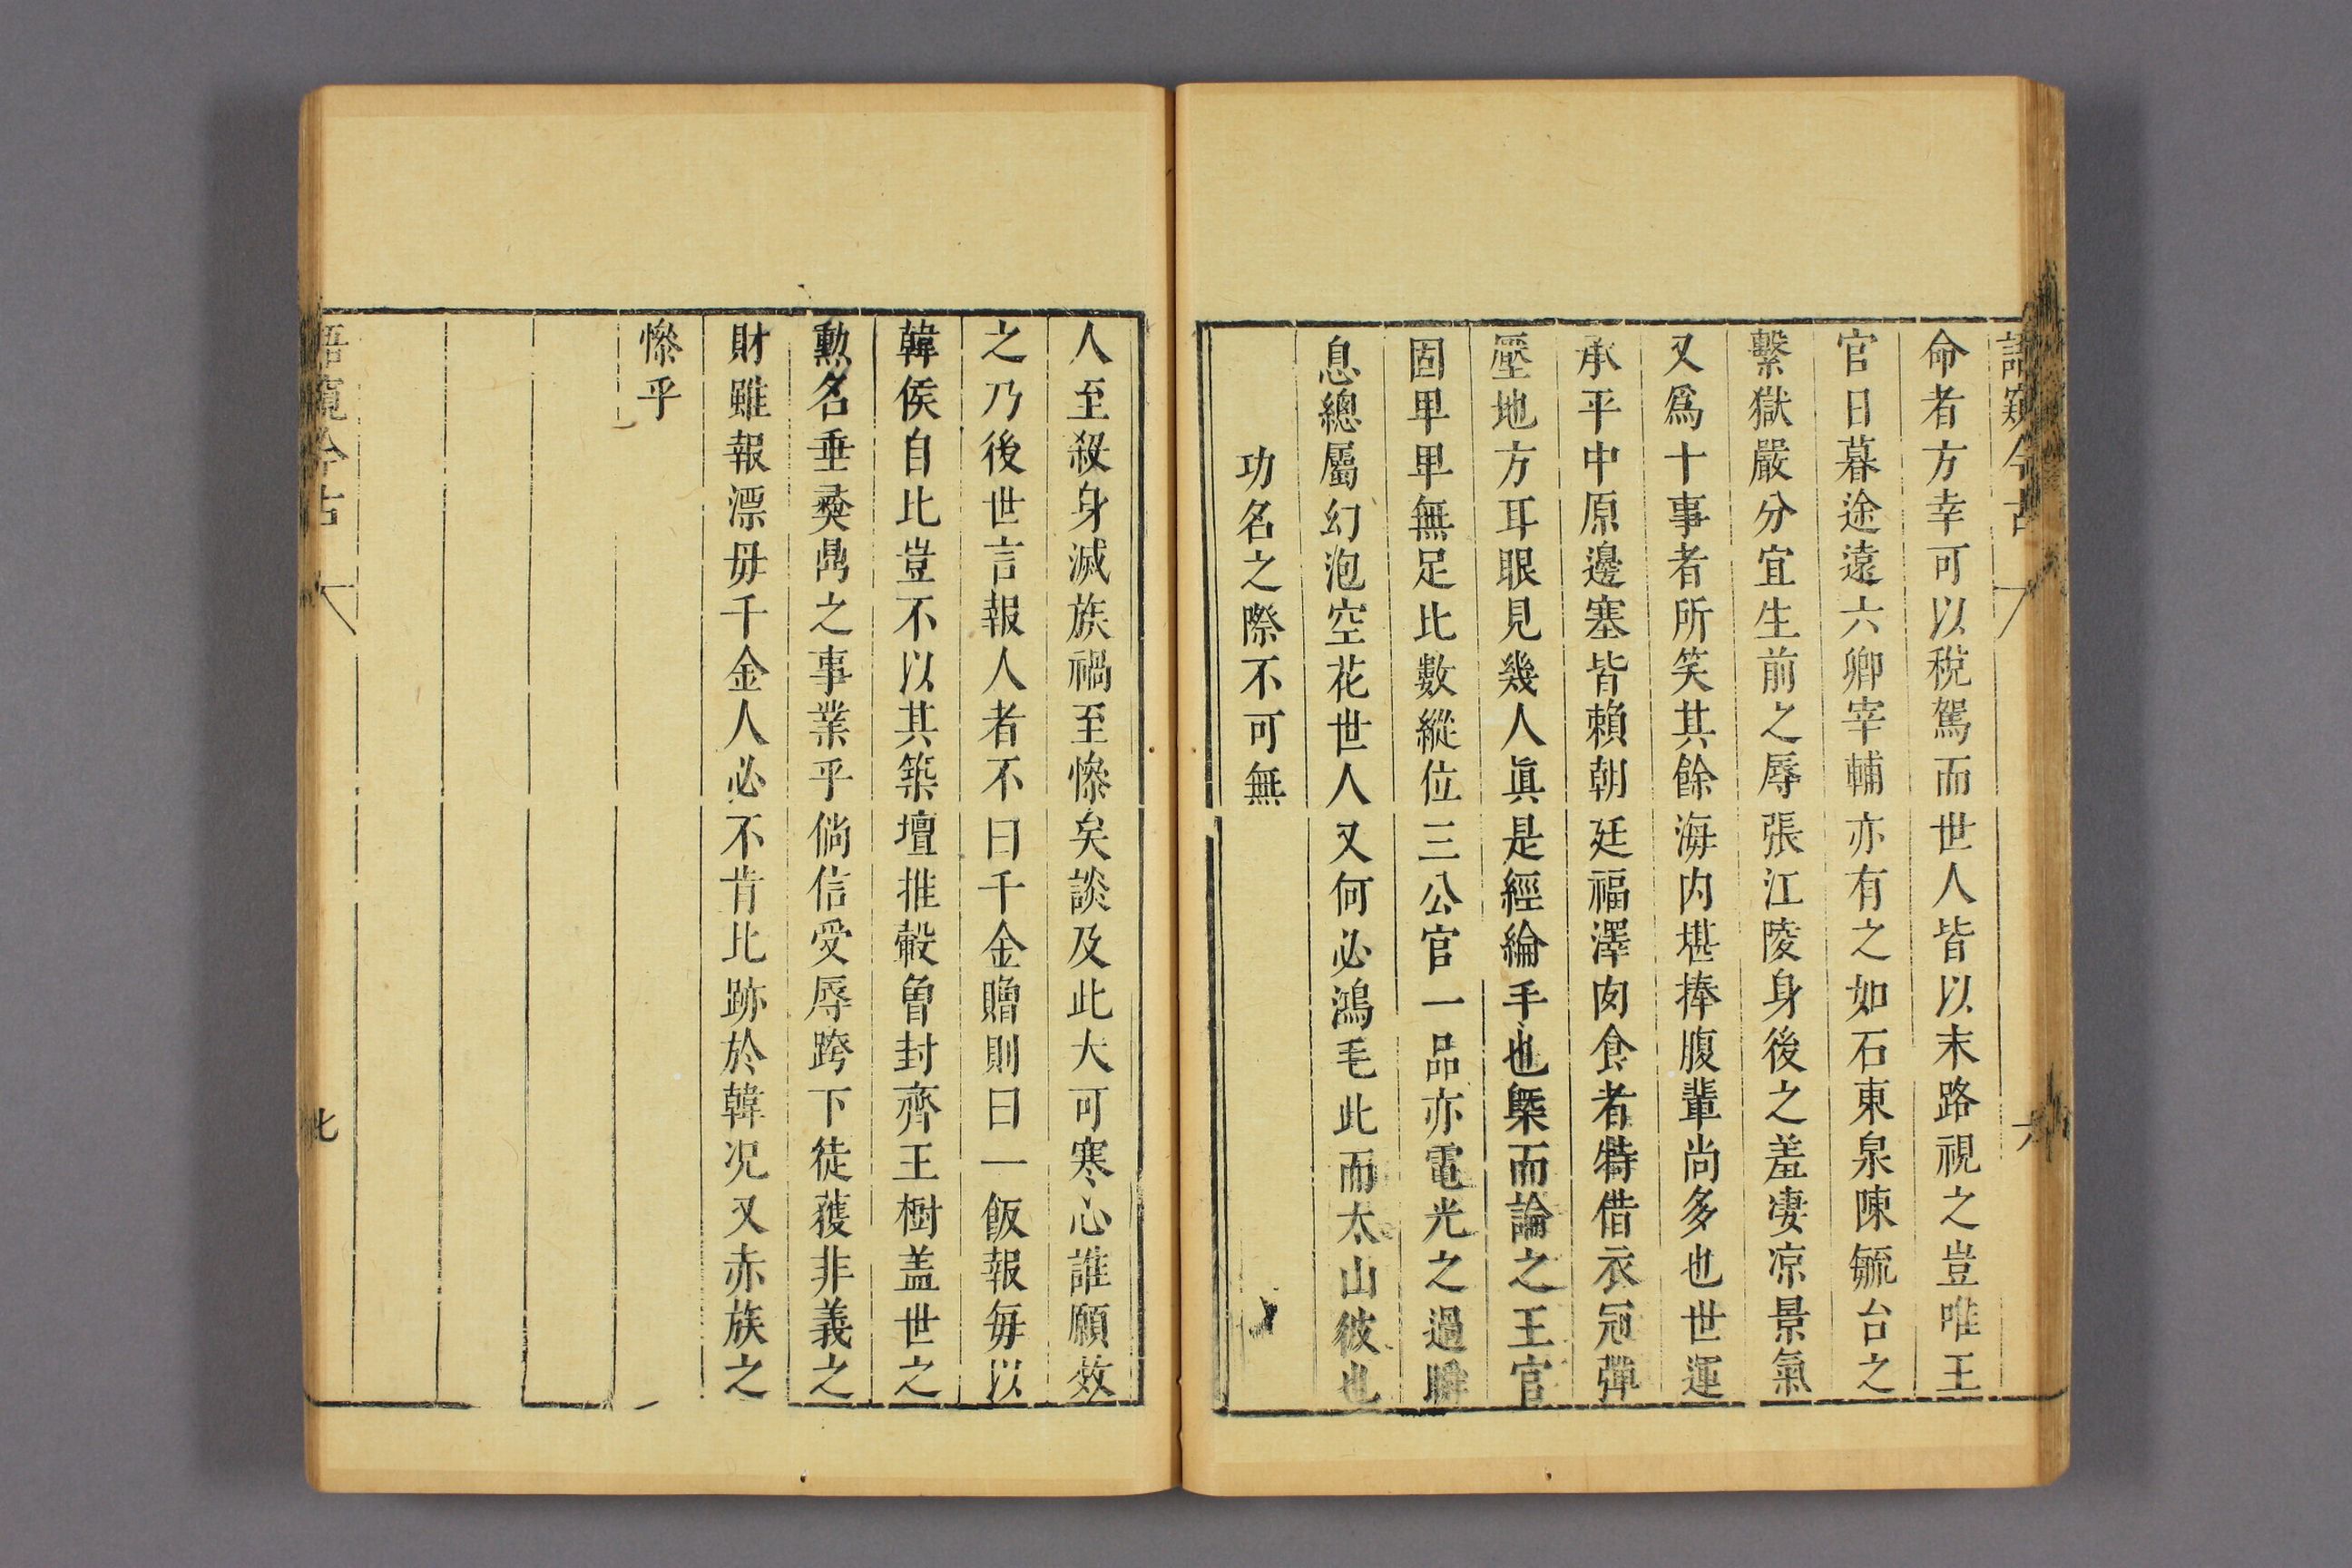 命者方幸可以稅駕而世人皆以末路視之豈唯王
官日暮途遠六卿宰輔亦有之如石東泉陳毓台之
繫獄嚴分宜生前之辱張江陵身後之羞凄凉景氣
又爲十事者所笑其餘海内堪捧腹輩尚多也世運
承平中原邊塞皆賴朝廷福澤肉食者特借衣冠彈
壓地方耳眼見幾人眞是經綸手也槩而論之王官
固卑卑無足比數縱位三公官一品亦電光之過瞬
息總屬幻泡空花世人又何必鴻毛此而太山彼也
功名之際不可無
人至殺身滅族禍至慘矣談及此大可寒心誰願效
之乃後世言報人者不曰千金贈則曰一飯報每以
韓侯自比豈不以其築壇推轂曽封齊王樹盖世之
勲名垂彛鼎之事業乎倘信受辱跨下徒獲非義之
財雖報漂毋千金人必不肯比跡於韓况又赤族之
慘乎
七